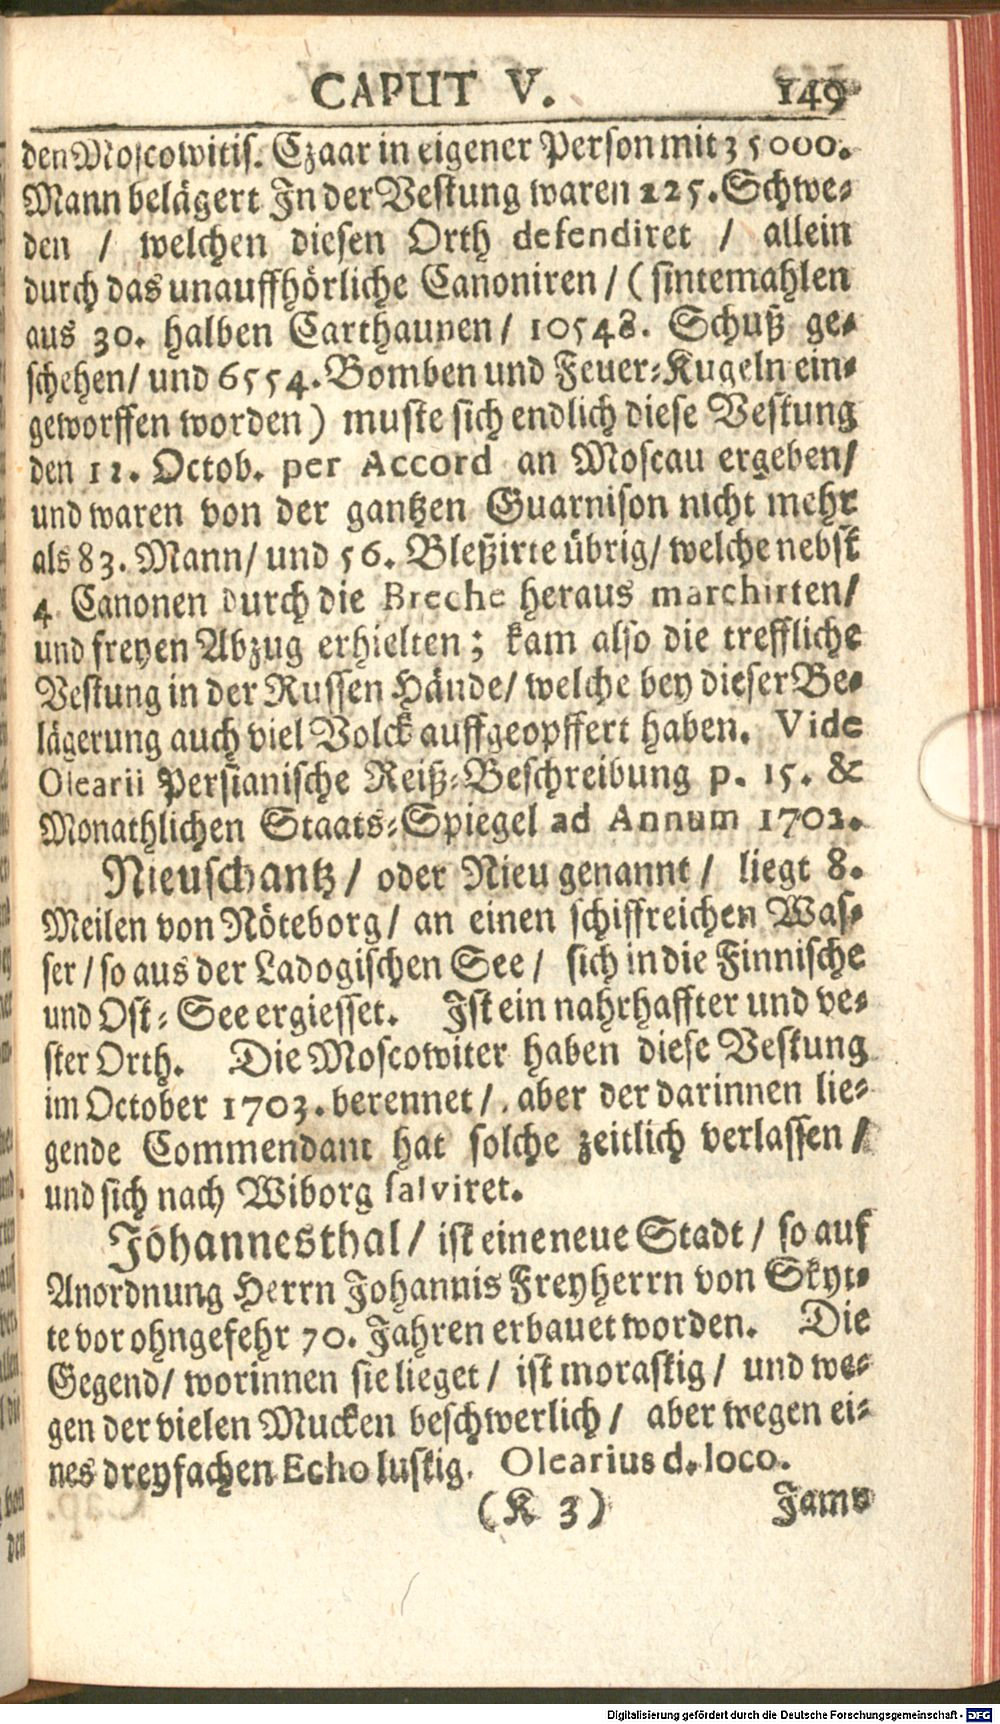 CAPUT V. 149
den Moscowitis. Czaar in eigener Person mit 35000.
Mann belägert In der Vestung waren 225. Schwe-
den / welchen diesen Orth defendiret / allein
durch das unauffhörliche Canoniren / ( sintemahlen
aus 30. halben Carthaunen / 10548. Schuß ge-
schehen / und 6554. Bomben und Feuer-Kugeln ein-
geworffen worden ) muste sich endlich diese Vestung
den 11. Octob. per Accord an Moscau ergeben /
und waren von der gantzen Guarnison nicht mehr
als 83. Mann / und 56. Bleßirte übrig / welche nebst
4 Canonen durch die Breche heraus marchirten /
und freyen Abzug erhielten ; kam also die treffliche
Vestung in der Russen Hände / welche bey dieser Be-
lägerung auch viel Volck auffgeopffert haben. Vide
Olearii Persianische Reiß-Beschreibung p. 15. &
Monathlichen Staats-Spiegel ad Annum 1702.
Nieuschantz / oder Nieu genannt / liegt 8.
Meilen von Nöteborg / an einen schiffreichen Was-
ser / so aus der Ladogischen See / sich in die Finnische
und Ost-See ergiesset. Ist ein nahrhaffter und ve-
ster Orth. Die Moscowiter haben diese Vestung
im October 1703. berennet / . aber der darinnen lie-
gende Commendant hat solche zeitlich verlassen /
und sich nach Wiborg salviret.
Johannesthal / ist eine neue Stadt / so auf
Anordnung Herrn Johannis Freyherrn von Skyt-
te vor ohngefehr 70. Jahren erbauet worden. Die
Gegend / worinnen sie lieget / ist morastig / und we-
gen der vielen Mucken beschwerlich / aber wegen ei-
nes dreyfachen Echo lustig. Olearius d. loco.
(K 3) Jama
Digitalisierung gefördert durch die Deutsche Forschungsgemeinschaft - DFG